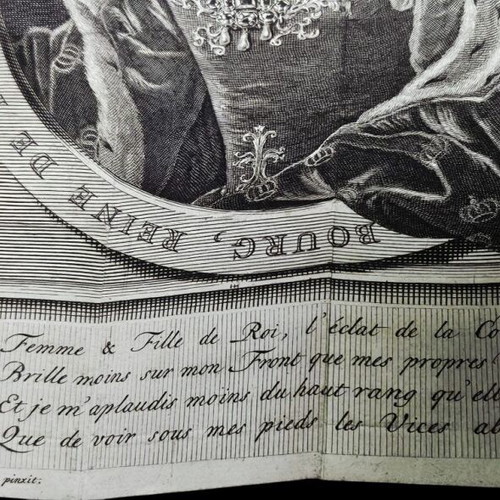 BOURG, REINE DE
Femme & Fille de Roi, l'éclat de la
Brille moins sur mon Front que mes propres
Et je m'aplaudis moins du haut rang qu'
Que de voir sous mes pieds les Vices
pinxit.